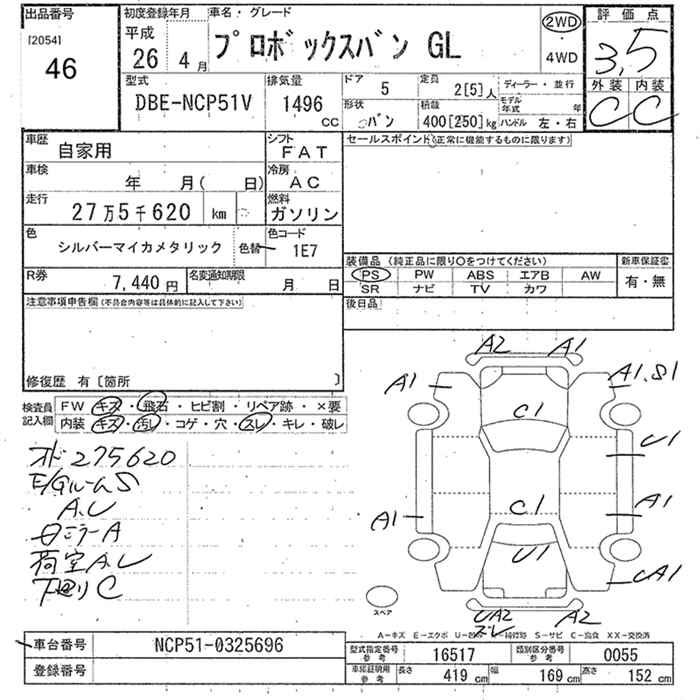 出品番号 初度登録年月 車名・グレード
[2054] 46
平成 26 4 月 プロボックスバン GL
2WD 4WD
評価点 3,5
外装 内装
C C
型式 DBE-NCP51V
排気量 1496 CC
ドア 5 定員 2[5]人
形状 バン 積載 400[250]kg
ディーラー・並行
モデル年式 年
ハンドル 左・右
車歴 自家用
シフト FAT
セールスポイント(正常に機能するものに限ります)
車検 年 月( 日)
冷房 AC
走行 27万5千620 km
燃料 ガソリン
色 シルバーマイカメタリック 色替
色コード 1E7
装備品(純正品に限り○をつけてください) 新車保証書
PS PW ABS エアB AW 有・無
SR ナビ TV カワ
R券 7,440円 名変通知期限 月 日
後日品
注意事項申告欄(不具合内容等は具体的に記入して下さい)
修復歴 有〔箇所 〕
検査員記入欄
FW キズ・飛石・ヒビ割・リペア跡・×要
内装 キズ・汚レ・コゲ・穴・スレ・キレ・破レ
オド275620
E/GルームS
A.U
日ミラーA
荷室A.U
下廻りC
A2 A1
A1 A1.S1
C1
U1
C1
A1 A1
U1
UA1
スペア
UA2 スレ A2
A-キズ E-エクボ S-サビ C-腐食 XX-交換済
車台番号 NCP51-0325696
登録番号
型式指定番号参考 16517 類別区分番号参考 0055
車検証明用参考 長さ 419 cm 幅 169 cm 高さ 152 cm